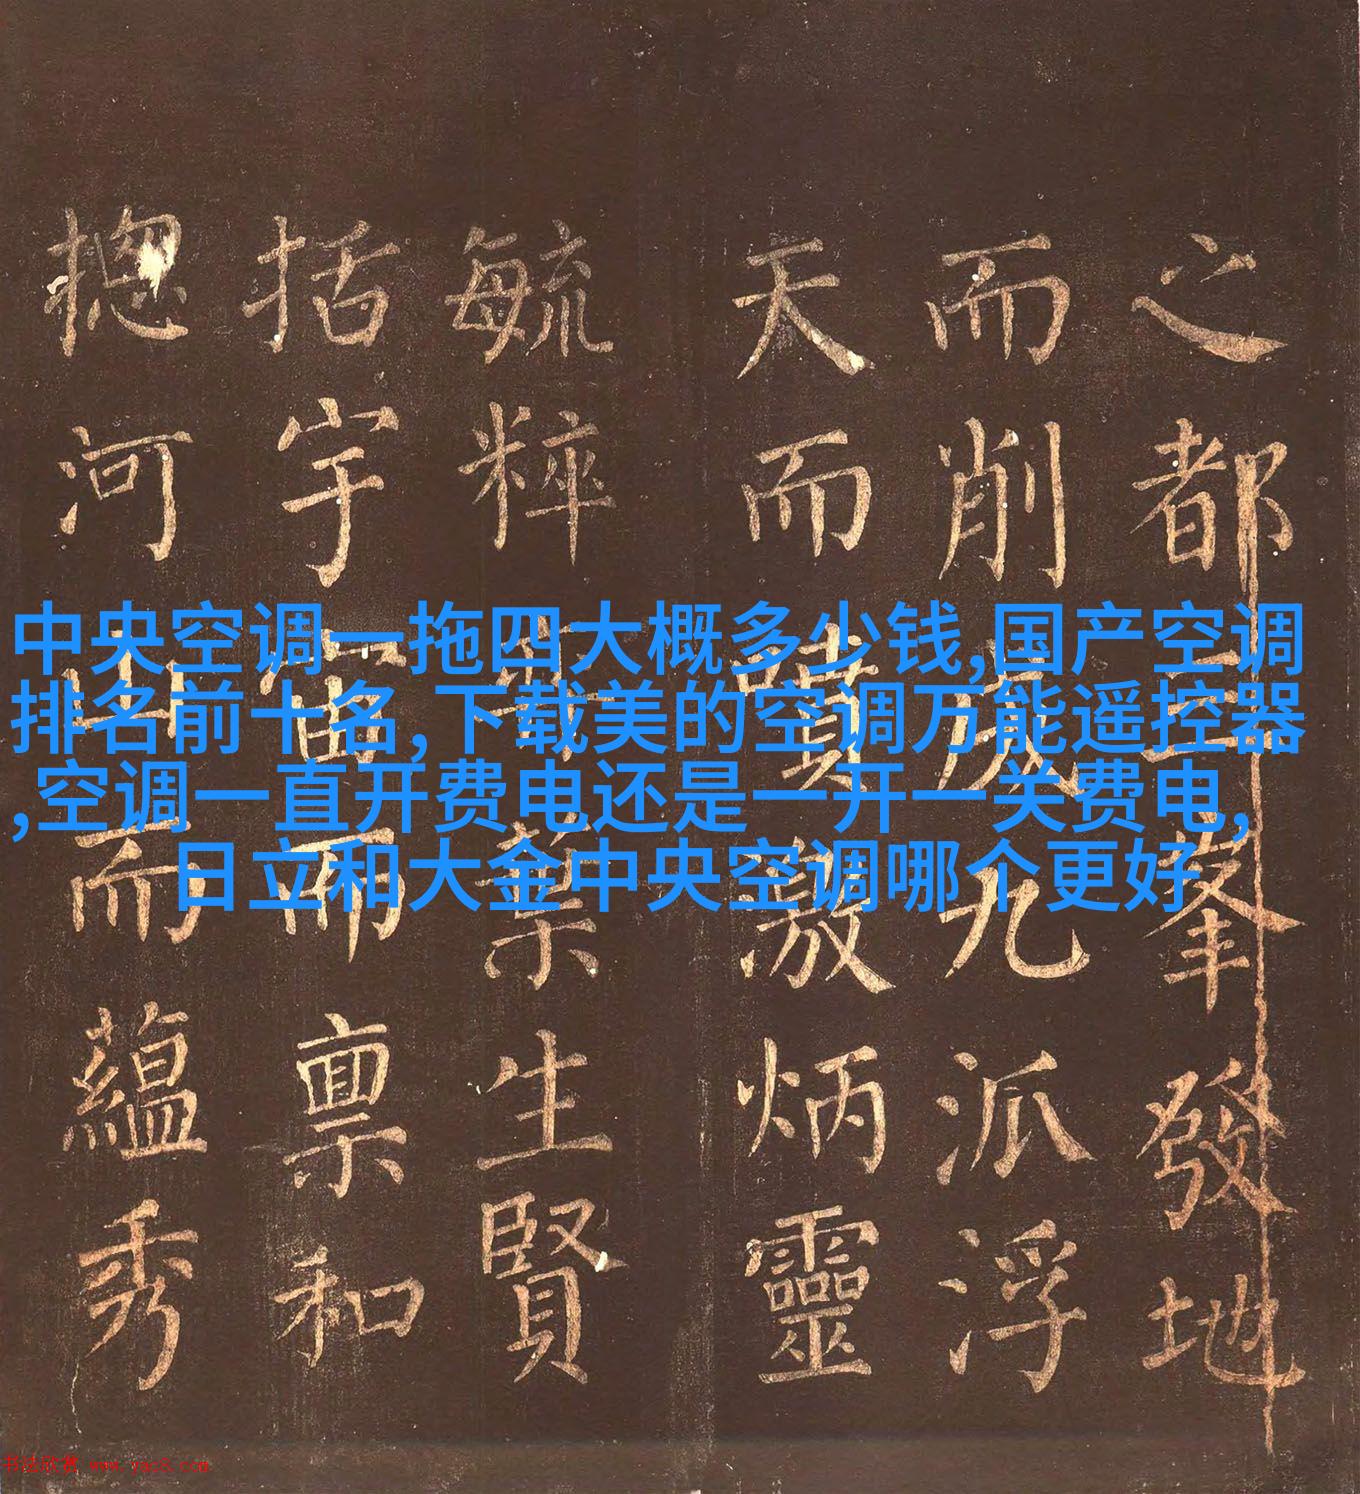 中央空调一拖四大概多少钱,国产空调
排名前十名,下载美的空调万能遥控器
,空调一直开费电还是一开一关费电,
日立和大金中央空调哪个更好
之都三峯發地
而削成九派浮
天而噴激炳靈
毓粹生賢
括宇宙而禀和
揔河山而蘊秀
书法欣赏 www.yac8.com